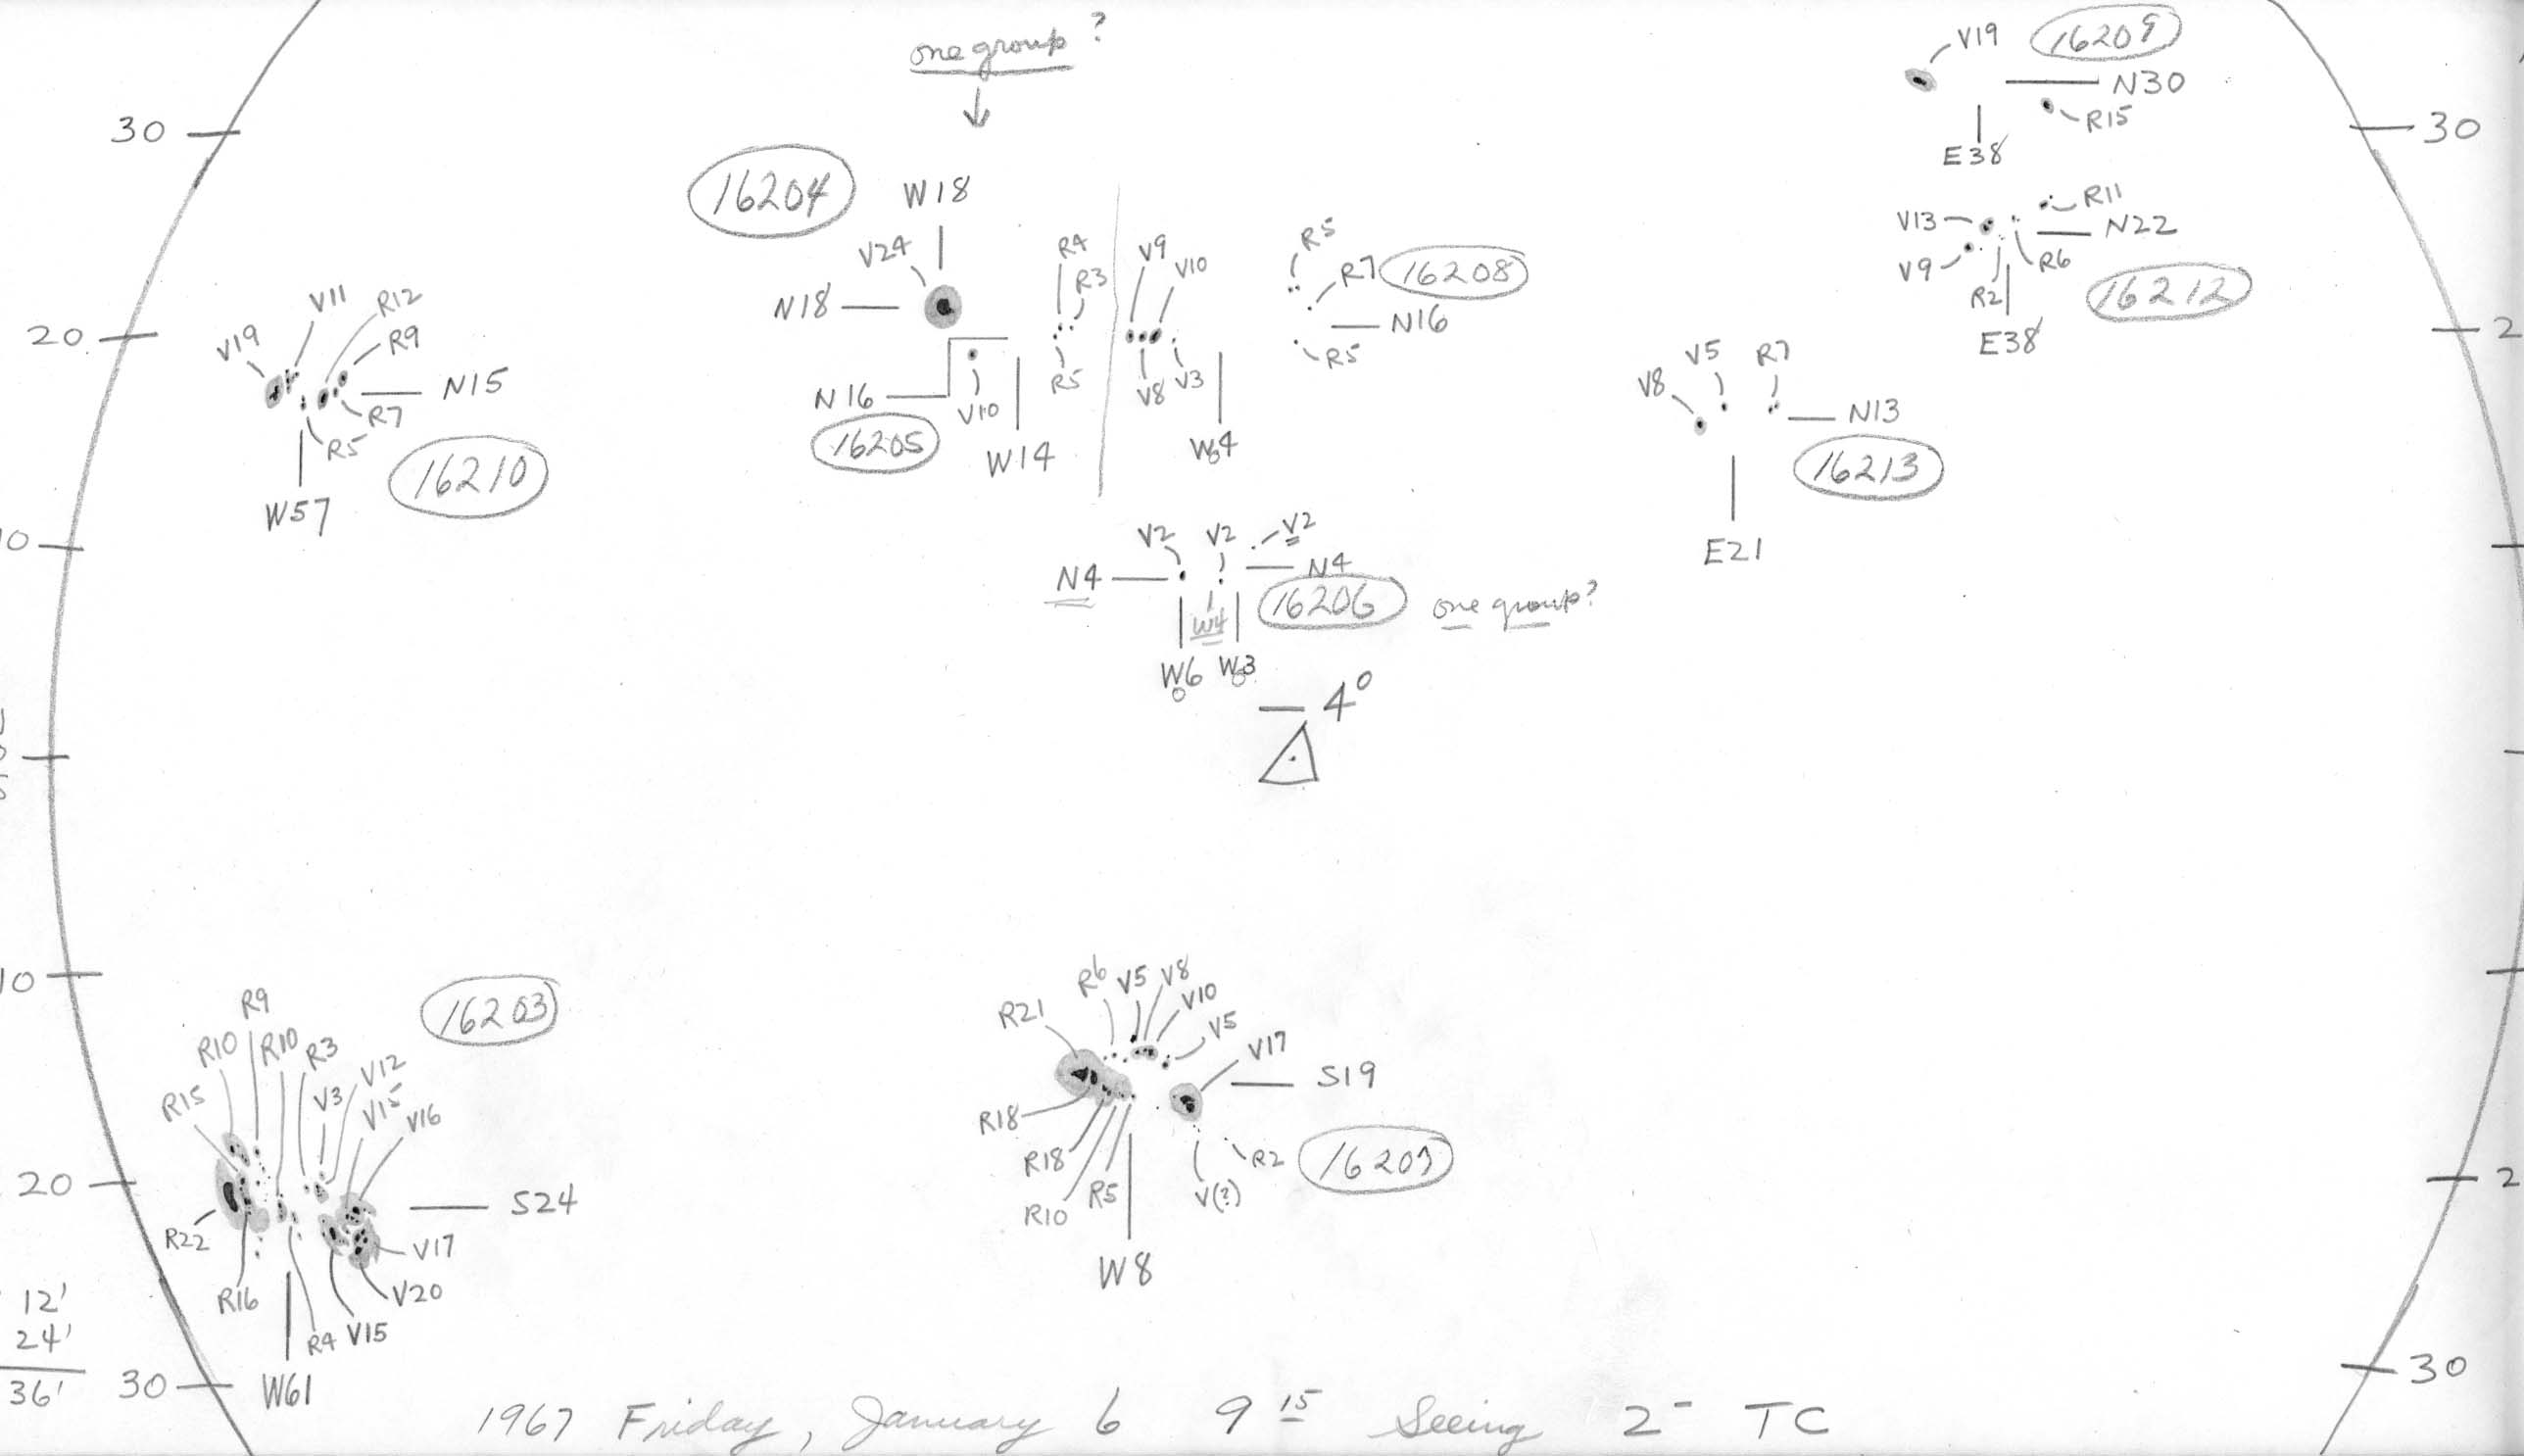 one group ?
30
16204
W18
V24
N18
R4
R3
R5
V9
V10
V8
V3
W4
N16
V10
16205
W14
R5
R7
16208
N16
R5
V19
16209
N30
R15
E38
30
V13
R11
N22
V9
R2
R6
16212
E38
2
20
V19
V11
R12
R9
N15
R7
R5
16210
W57
V8
V5
R7
N13
16213
E21
10
V2
V2
V2
N4
N4
16206
one group?
W4
W6
W3
4°
10
16203
R9
R10
R10
R3
V12
R15
V3
V15
V16
20
S24
R22
V17
R16
V20
R4
V15
W61
R6
V5
V8
R21
V10
V5
V17
S19
R18
R18
R2
R10
R5
V(?)
W8
2
12'
24'
36'
30
30
1967 Friday, January 6 9 15 Seeing 2- TC